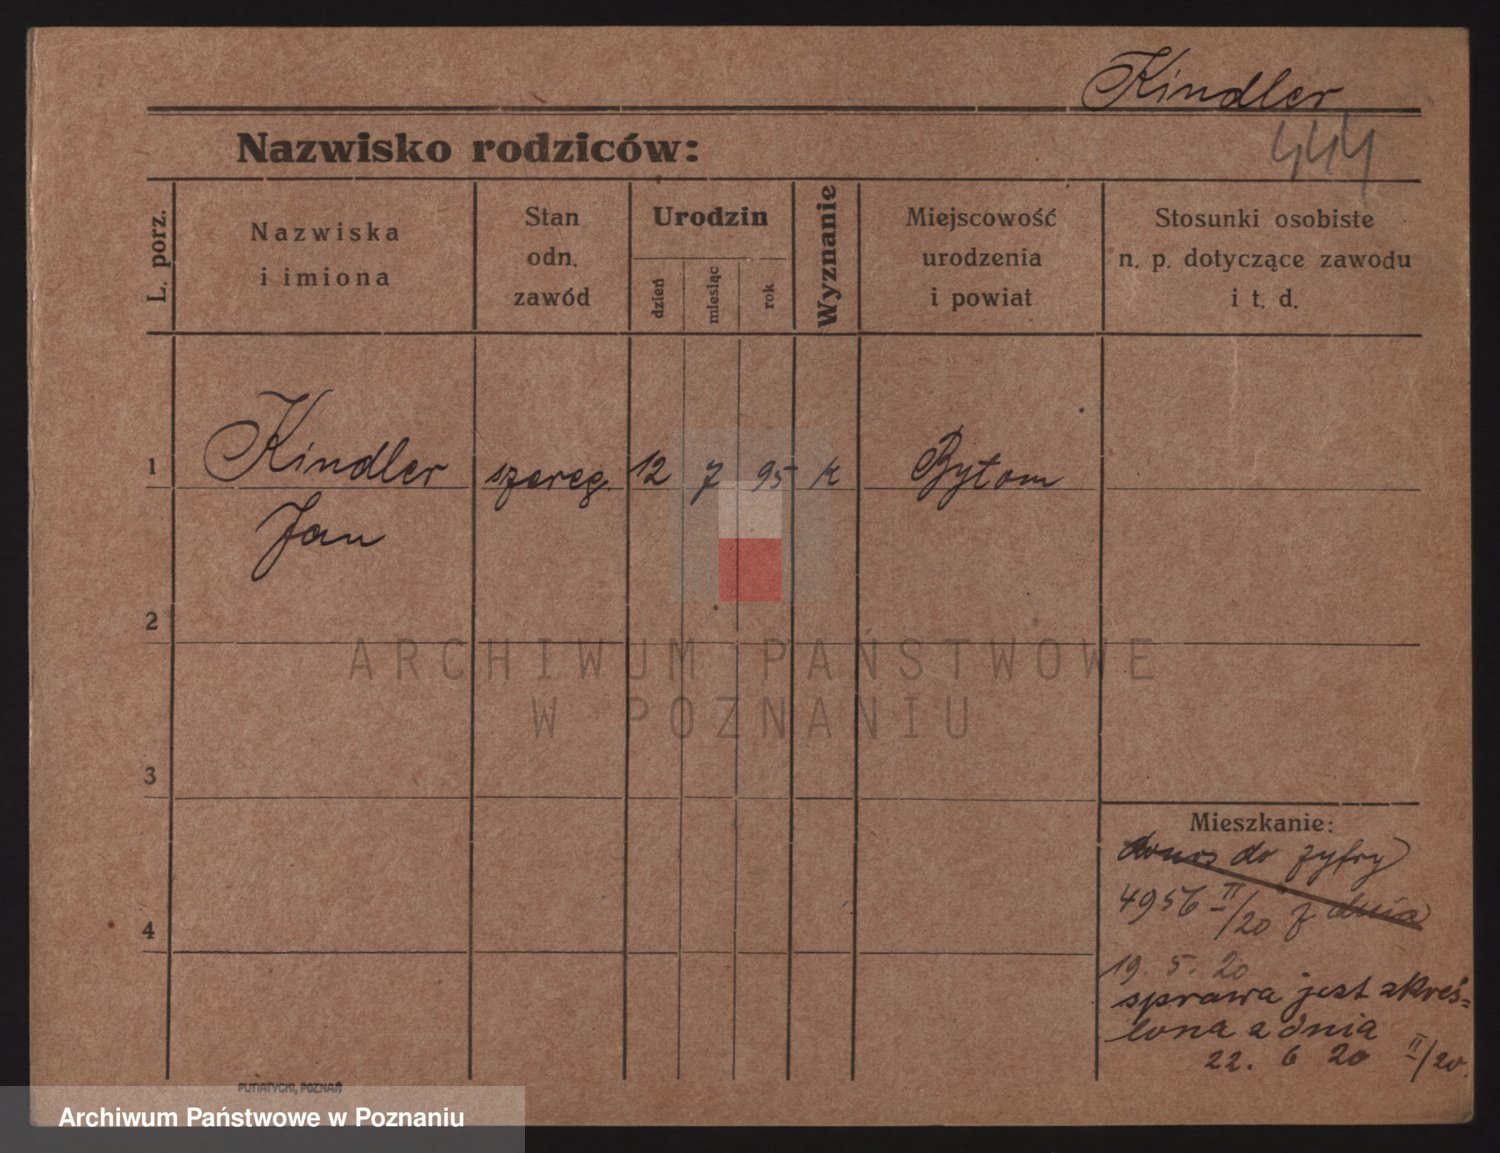 Kindler
Nazwisko rodziców:
444
L. porz.
Nazwiska
i imiona
Stan
odn.
zawód
Urodzin
dzień
miesiąc
rok
Wyznanie
Miejscowość
urodzenia
i powiat
Stosunki osobiste
n. p. dotyczące zawodu
i t. d.
1
Kindler
Jan
szereg.
12
7
95
k
Bytom
2
3
4
Mieszkanie:
do zyfry
4956 II/20 z dnia
19. 5. 20
sprawa jest skreś=
lona z dnia
22. 6 20 II/20.
PUTIATYCKI, POZNAŃ
ARCHIWUM PAŃSTWOWE
W POZNANIU
Archiwum Państwowe w Poznaniu